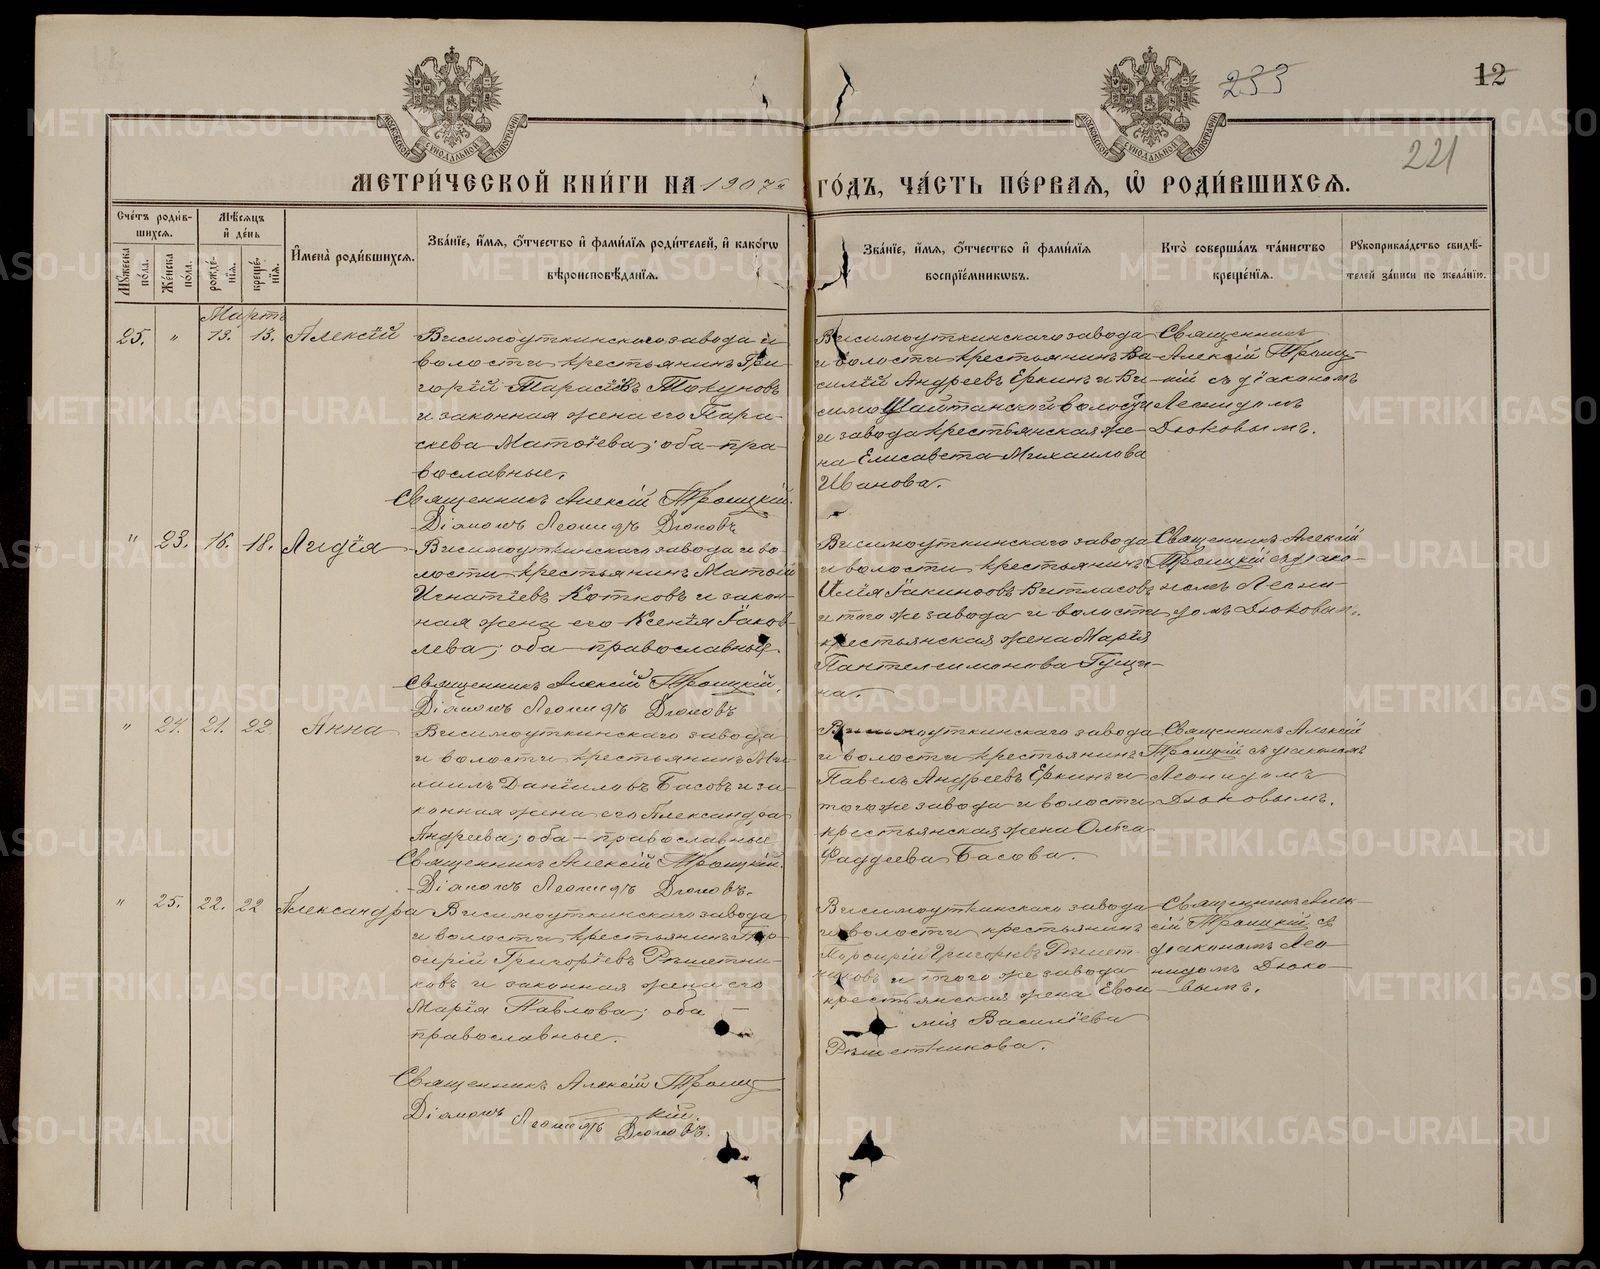 233
12
221
МОСКОВСКОЙ СѴНОДАЛЬНОЙ ТИПОГРАФІИ
МОСКОВСКОЙ СѴНОДАЛЬНОЙ ТИПОГРАФІИ
МЕТРИ́ЧЕСКОЙ КНИ́ГИ НА 1907й ГО́ДЪ, ЧА́СТЬ ПЕ́РВАЯ, Ѽ РОДИ́ВШИХСЯ.
Сче́тъ роди́вшихся.
Мꙋ́жеска по́ла.
Же́нска по́ла.
Мѣ́сяцъ и҆ де́нь
рожде́нїя.
креще́нїя.
И҆мена̀ роди́вшихся.
Зва́нїе, и҆́мя, ѻ҆́тчество и҆ фами́лїя роди́телей, и҆ како́гѡ
вѣроисповѣ́данїя.
Зва́нїе, и҆́мя, ѻ҆́тчество и҆ фами́лїя
воспрїе́мникѡвъ.
Кто̀ соверша́лъ та́инство
креще́нїя.
Рꙋкоприкла́дство свидѣ́-
телей за́писи по жела́нїю.
Мартъ
25. " 13. 13. Алексій
Висимоуткинскаго завода и
волости крестьянинъ Гри-
горій Тарасіевъ Токуновъ
и законная жена его Пара-
скева Матѳіева; оба пра-
вославные.
Священникъ Алексій Троицкій.
Діаконъ Леонидъ Дюковъ
Висимоуткинскаго завода
и волости крестьянинъ Ва-
силій Андреевъ Еркинъ и Ви-
симо Шайтанской волости
и завода крестьянская же-
на Елисавета Михаилова
Иванова.
Священникъ
Алексій Троиц-
кій съ діакономъ
Леонидомъ
Дюковымъ.
" 23. 16. 18. Лидія
Висимоуткинскаго завода и во-
лости крестьянинъ Матѳій
Игнатіевъ Котковъ и закон-
ная жена его Ксенія Іаков-
лева; оба православные.
Священникъ Алексій Троицкій.
Діаконъ Леонидъ Дюковъ
Висимоуткинскаго завода
и волости крестьянинъ
Илія Іакинѳовъ Витласовъ
и того же завода и волости
крестьянская жена Марія
Пантелеимонова Гущи-
на.
Священникъ Алексій
Троицкій съ діако-
номъ Леони-
домъ Дюковым.
" 24. 21. 22 Анна
Висимоуткинскаго завода
и волости крестьянинъ Ми-
хаилъ Даніиловъ Басовъ и за-
конная жена его Александра
Андреева; оба - православные
Священникъ Алексій Троицкій.
Діаконъ Леонидъ Дюковъ.
Висимоуткинскаго завода
и волости крестьянинъ
Павелъ Андреевъ Еркинъ и
того же завода и волости
крестьянская жена Ольга
Фаддеева Басова.
Священникъ Алексій
Троицкій съ діакономъ
Леонидомъ
Дюковымъ.
" 25. 22. 22 Александра
Висимоуткинскаго завода
и волости крестьянинъ Пор-
ѳирій Григоріевъ Рѣшетни-
ковъ и законная жена его
Марія Павлова; оба -
православные.
Священникъ Алексій Троиц-
кій.
Діаконъ Леонидъ Дюковъ.
Висимоуткинскаго завода
и волости крестьянинъ
Порѳирій Григорьевъ Рѣшет-
никовъ и того же завода
крестьянская жена Евѳи-
мія Василіева
Рѣшетникова.
Священникъ Алек-
сій Троицкій съ
діакономъ Лео-
нидомъ Дюко-
вымъ.
METRIKI.GASO-URAL.RU